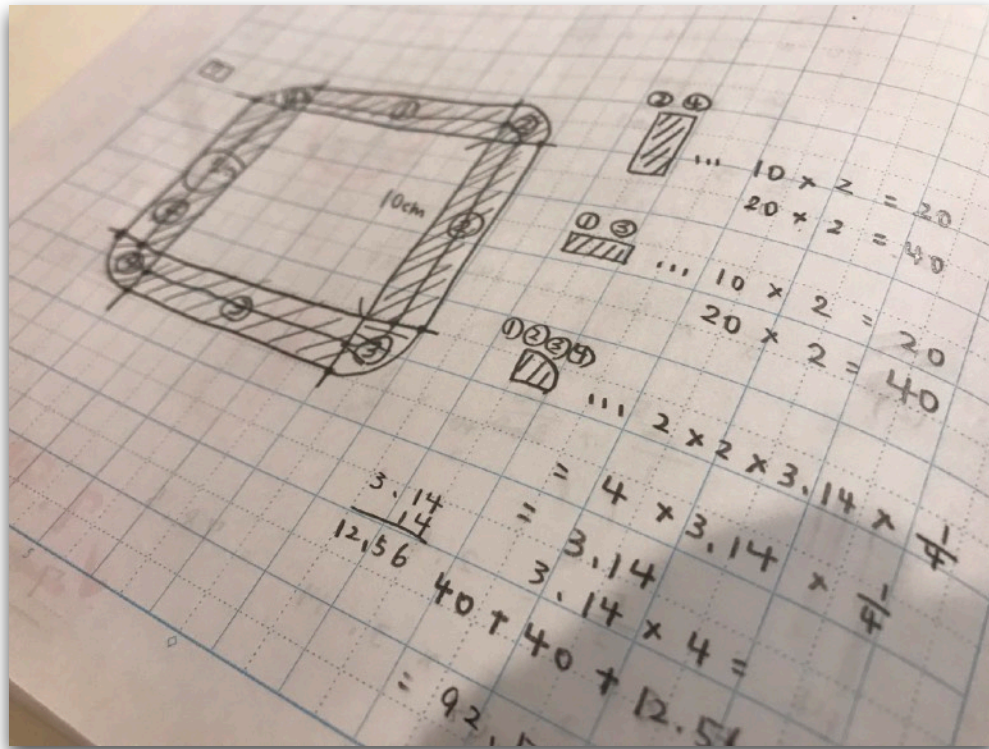 ①
②
②
③
③
10cm
② ④
... 10 × 2 = 20
20 × 2 = 40
① ③
... 10 × 2 = 20
20 × 2 = 40
①②③④
... 2 × 2 × 3.14 × 1/4
= 4 × 3.14 × 1/4
= 3.14
3.14 × 4 =
3.14
14
12.56
40 + 40 + 12.56
= 92.